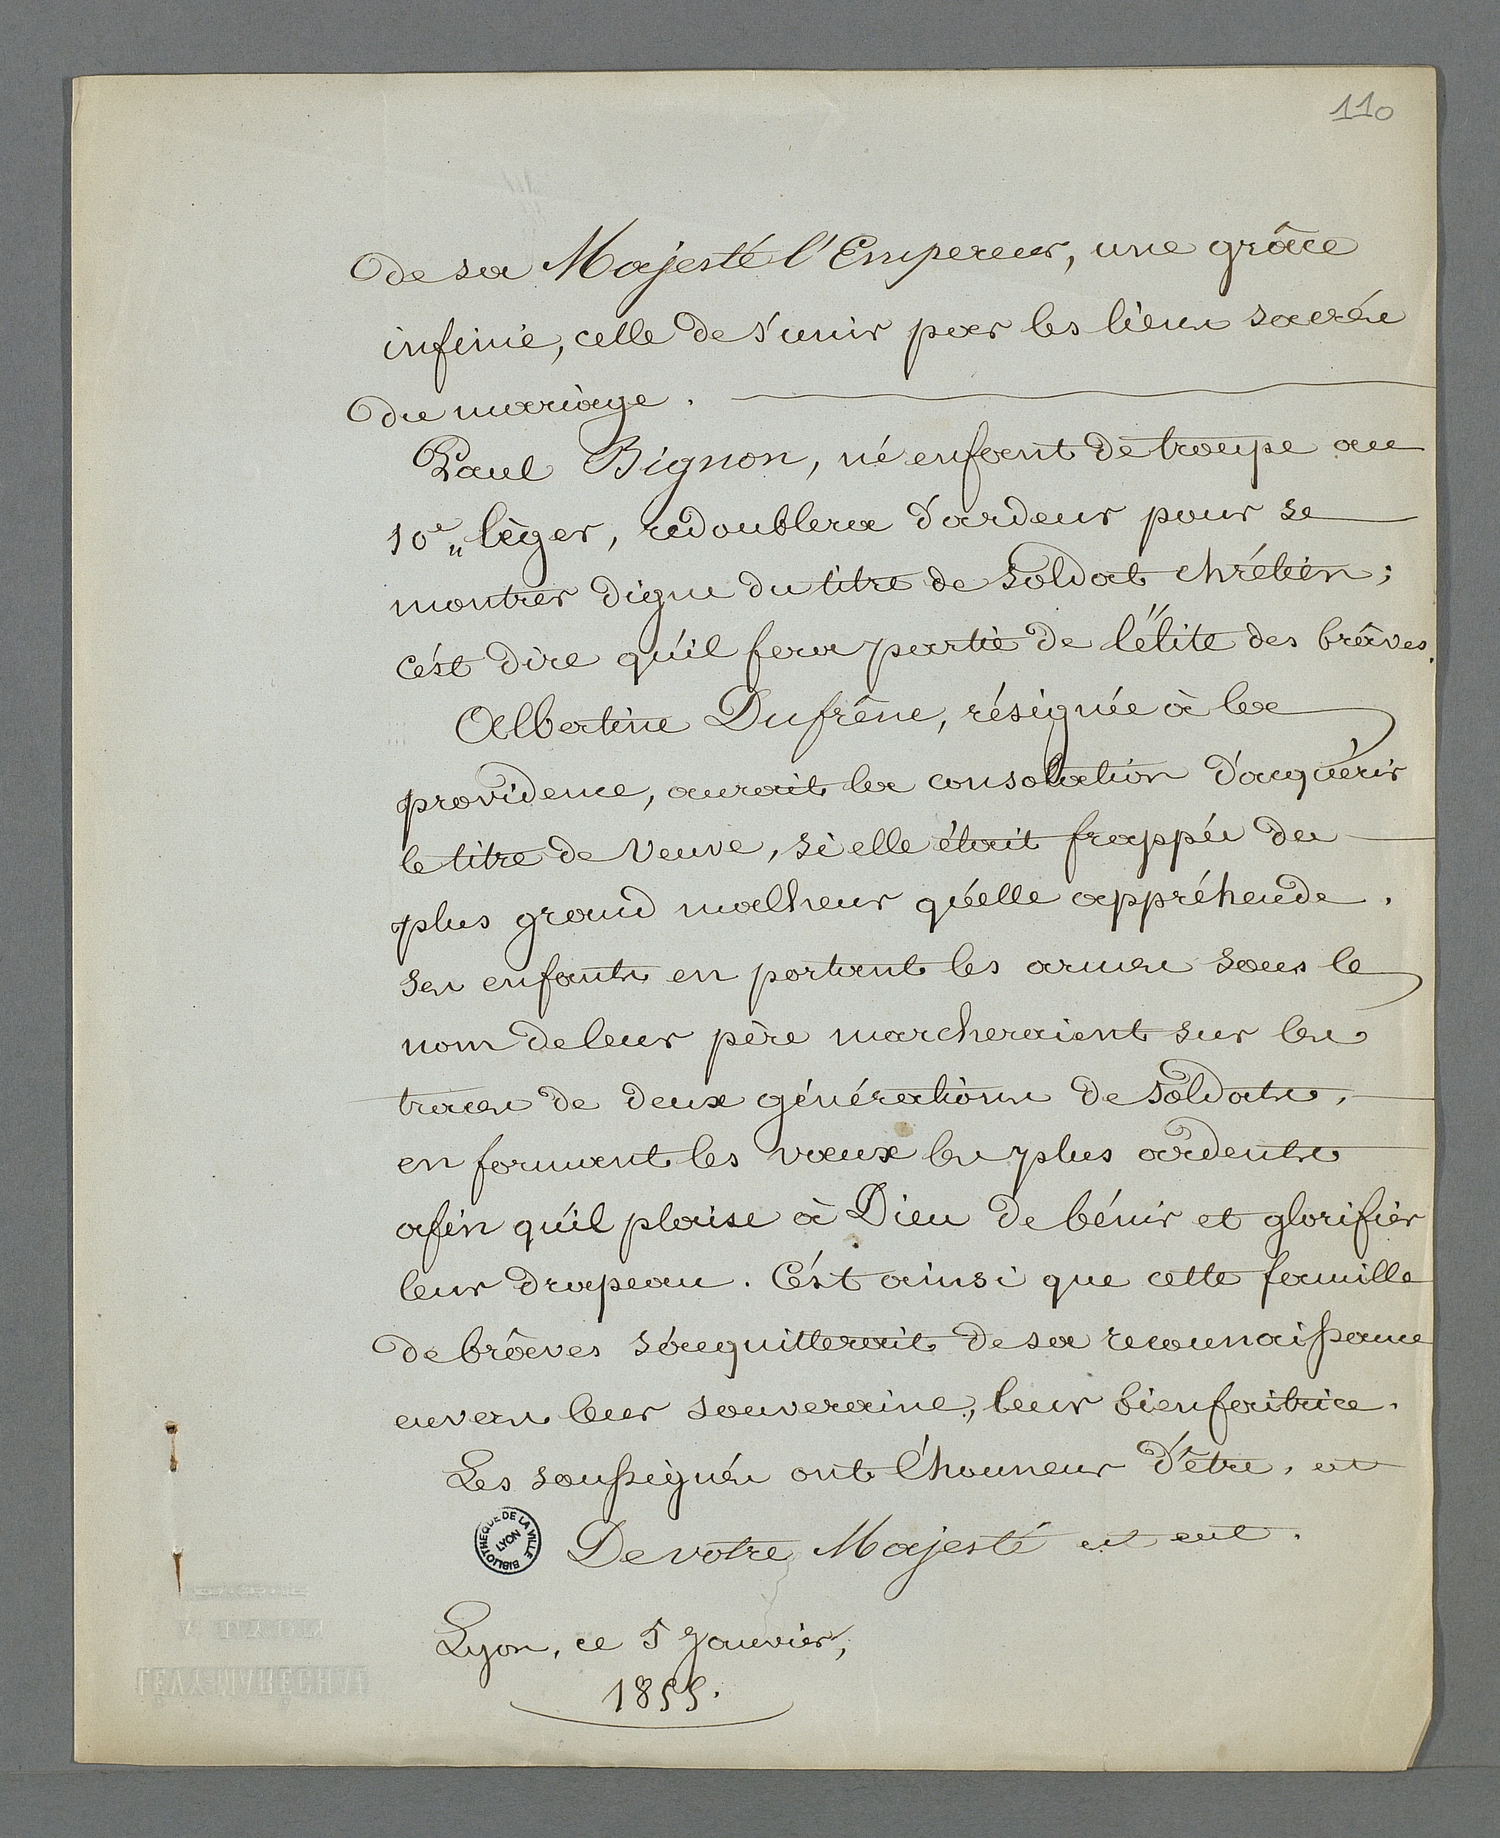 110
de sa Majesté l'Empereur, une grâce
infinie, celle de s'unir par les liens sacrés
du mariage.
Paul Bignon, né enfant de troupe au
10e léger, redoublera d'ardeur pour se
montrer digne du titre de soldat chrétien;
c'est dire qu'il fera partie de l'élite des brâves.
Albertine Dufrêne, résignée à la
providence, aurait la consolation d'acquérir
le titre de veuve, si elle était frappée du
plus grand malheur qu'elle appréhende.
ses enfants en portant les armes sous le
nom de leur père marcheraient sur les
traces de deux générations de soldats,
en formant les vœux les plus ardents
afin qu'il plaise à Dieu de bénir et glorifier
leur drapeau. C'est ainsi que cette famille
de brâves s'acquitterait de sa reconnaissance
envers leur souveraine, leur bienfaitrice.
Les soussignés ont l'honneur d'être, et
De votre Majesté et est.
BIBLIOTHEQUE DE LA VILLE
LYON
Lyon, ce 5 Janvier,
1855.
A LYON
LÉVY-MARÉCHAL